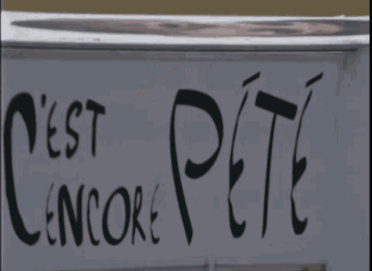 C'EST
ENCORE PÉTÉ